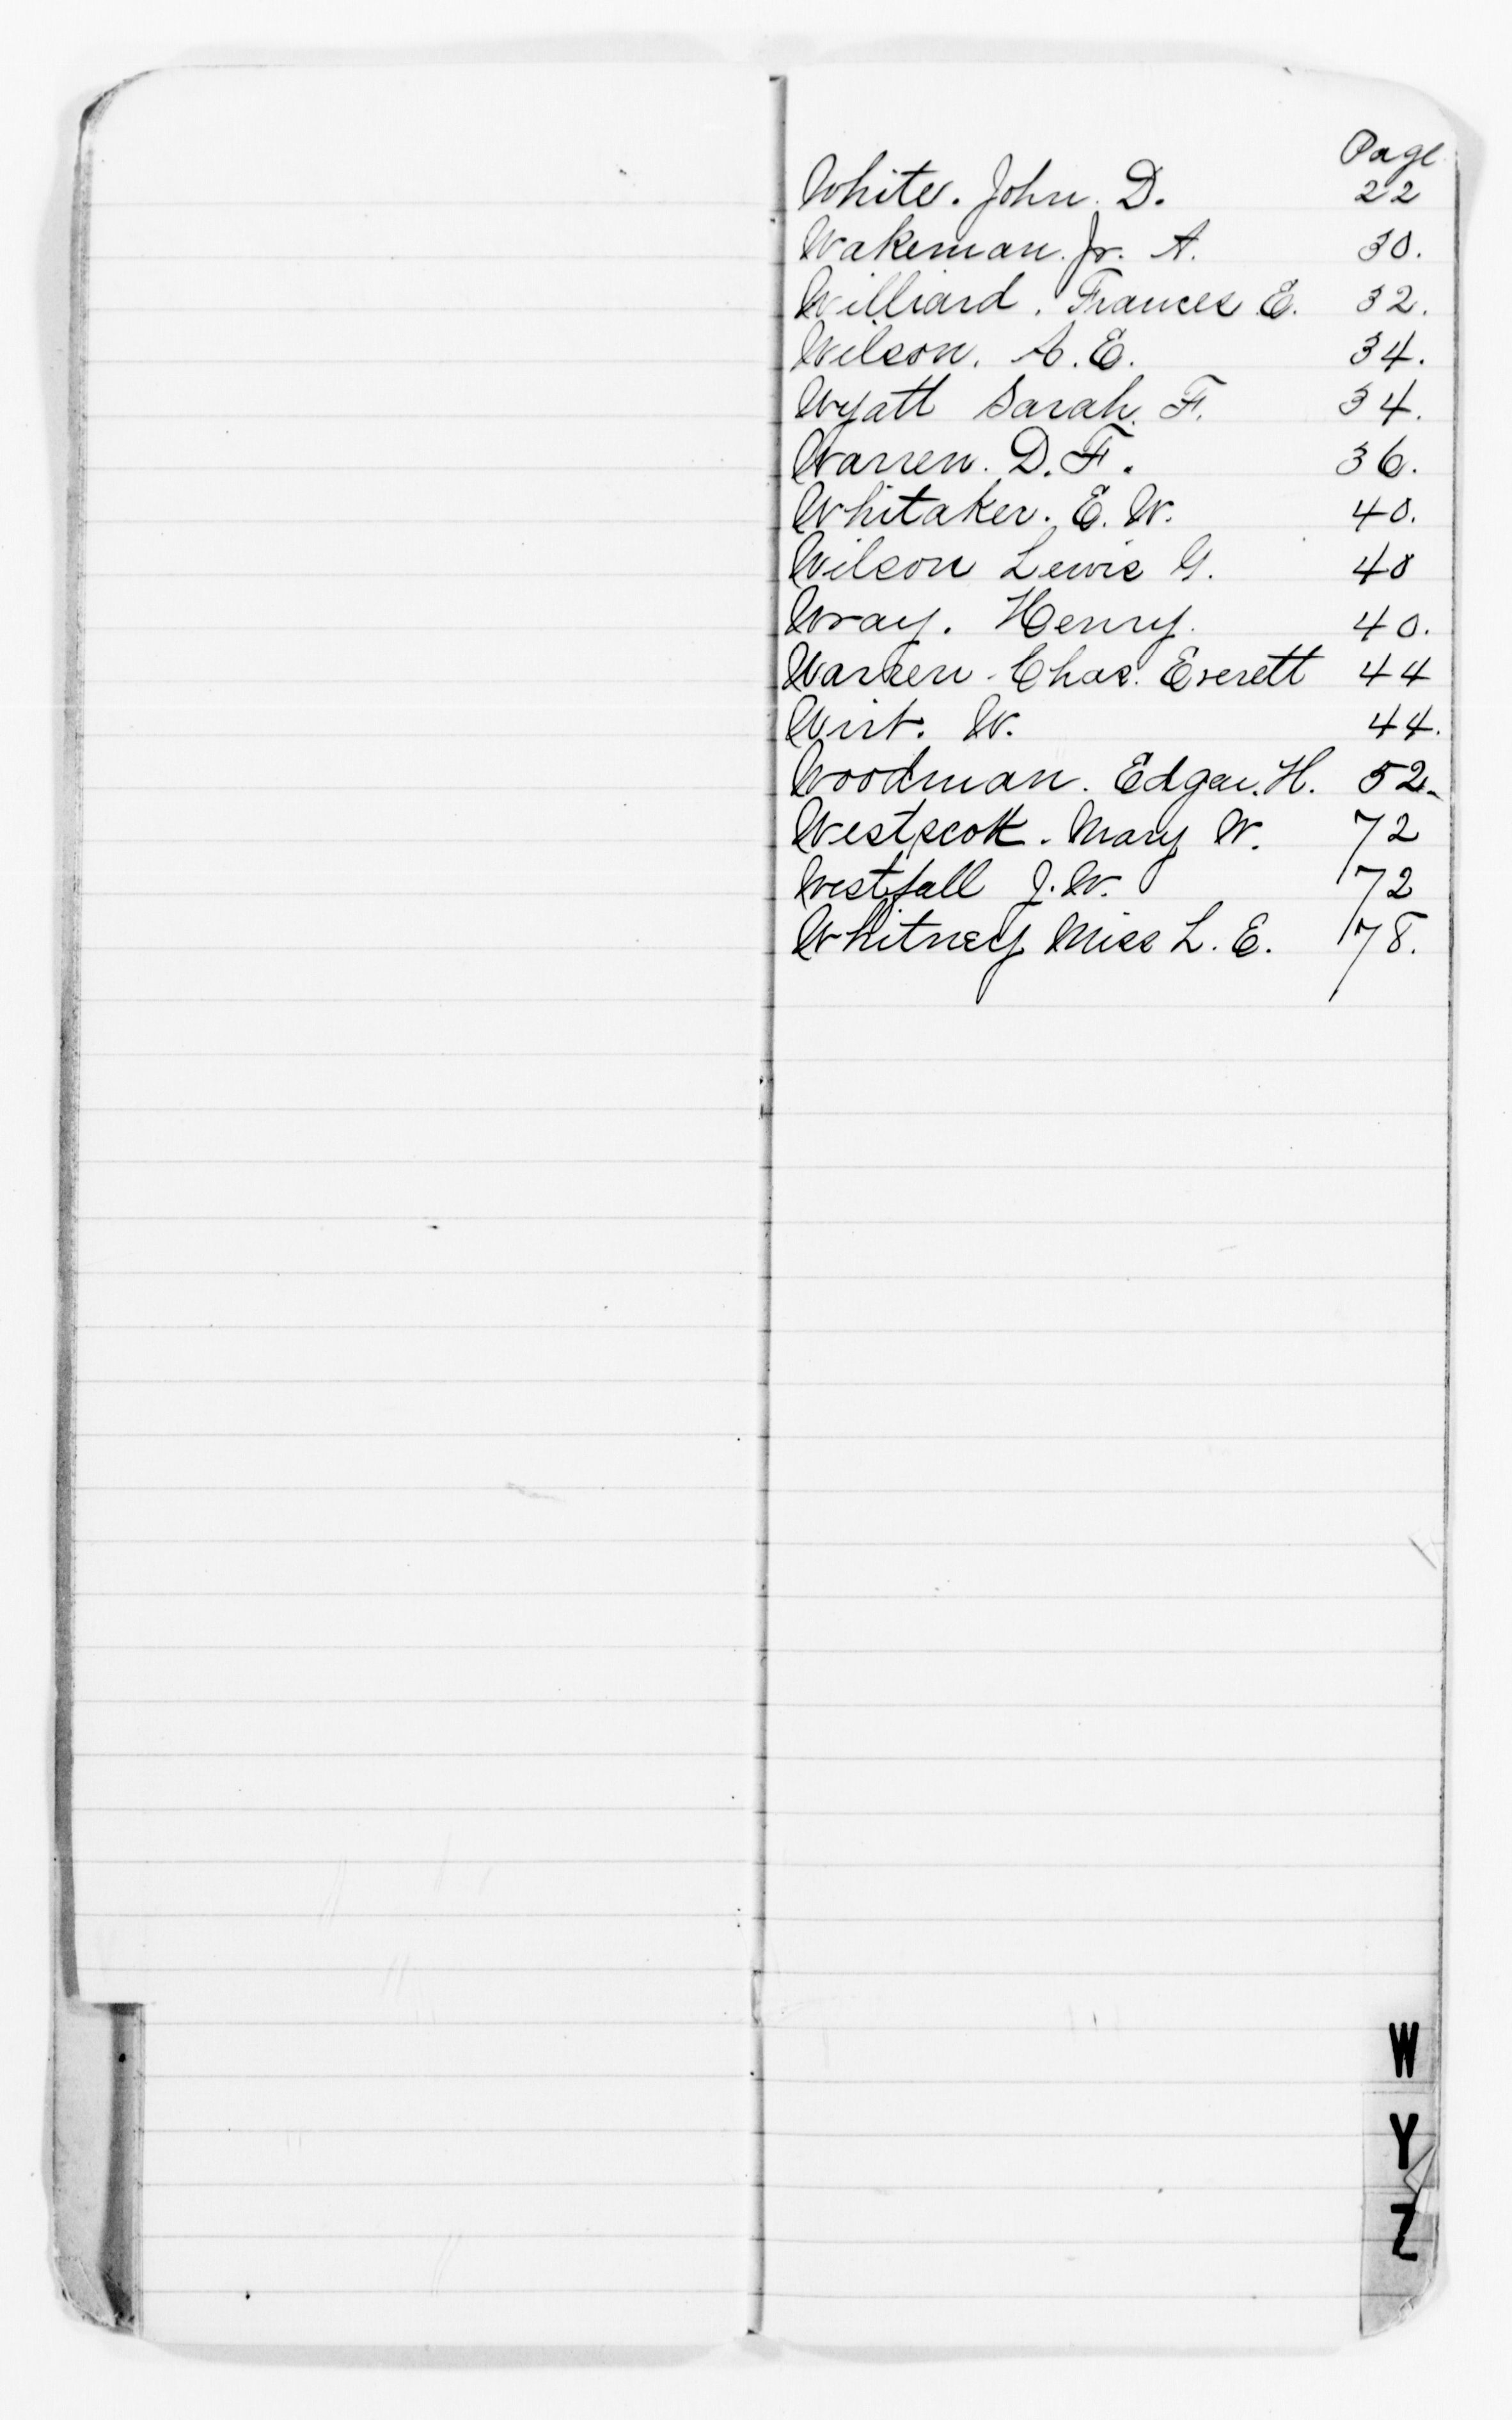 Page
White. John. D. 22
Wakeman. Jr. A. 30.
Williard. Frances E. 32.
Wilson. A. E. 34.
Wyatt Sarah. F. 34.
Warren. D. F. 36.
Whitaker. E. W. 40.
Wilson Lewis G. 40
Wray. Henry. 40.
Warren - Chas. Everett 44
Wirt. W. 44.
Woodman. Edgar. H. 52.
Westscott. Mary W. 72
Westfall J. W. 72
Whitney Miss L. E. 78.
W
Y
Z